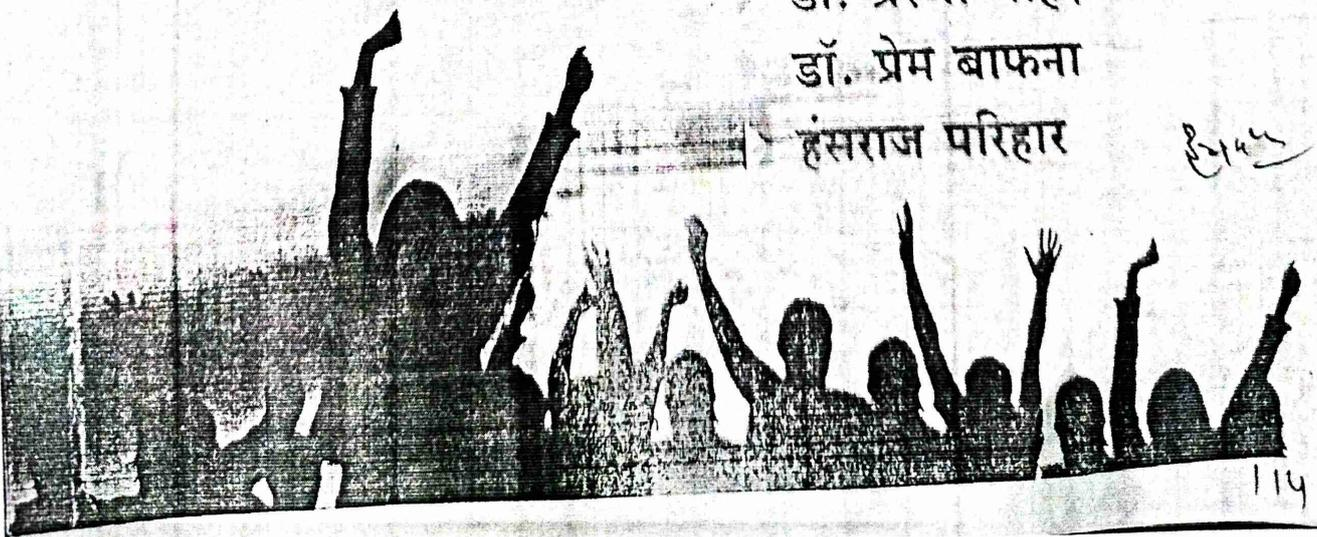 डॉ.
डॉ. प्रेम बाफना
हंसराज परिहार
114